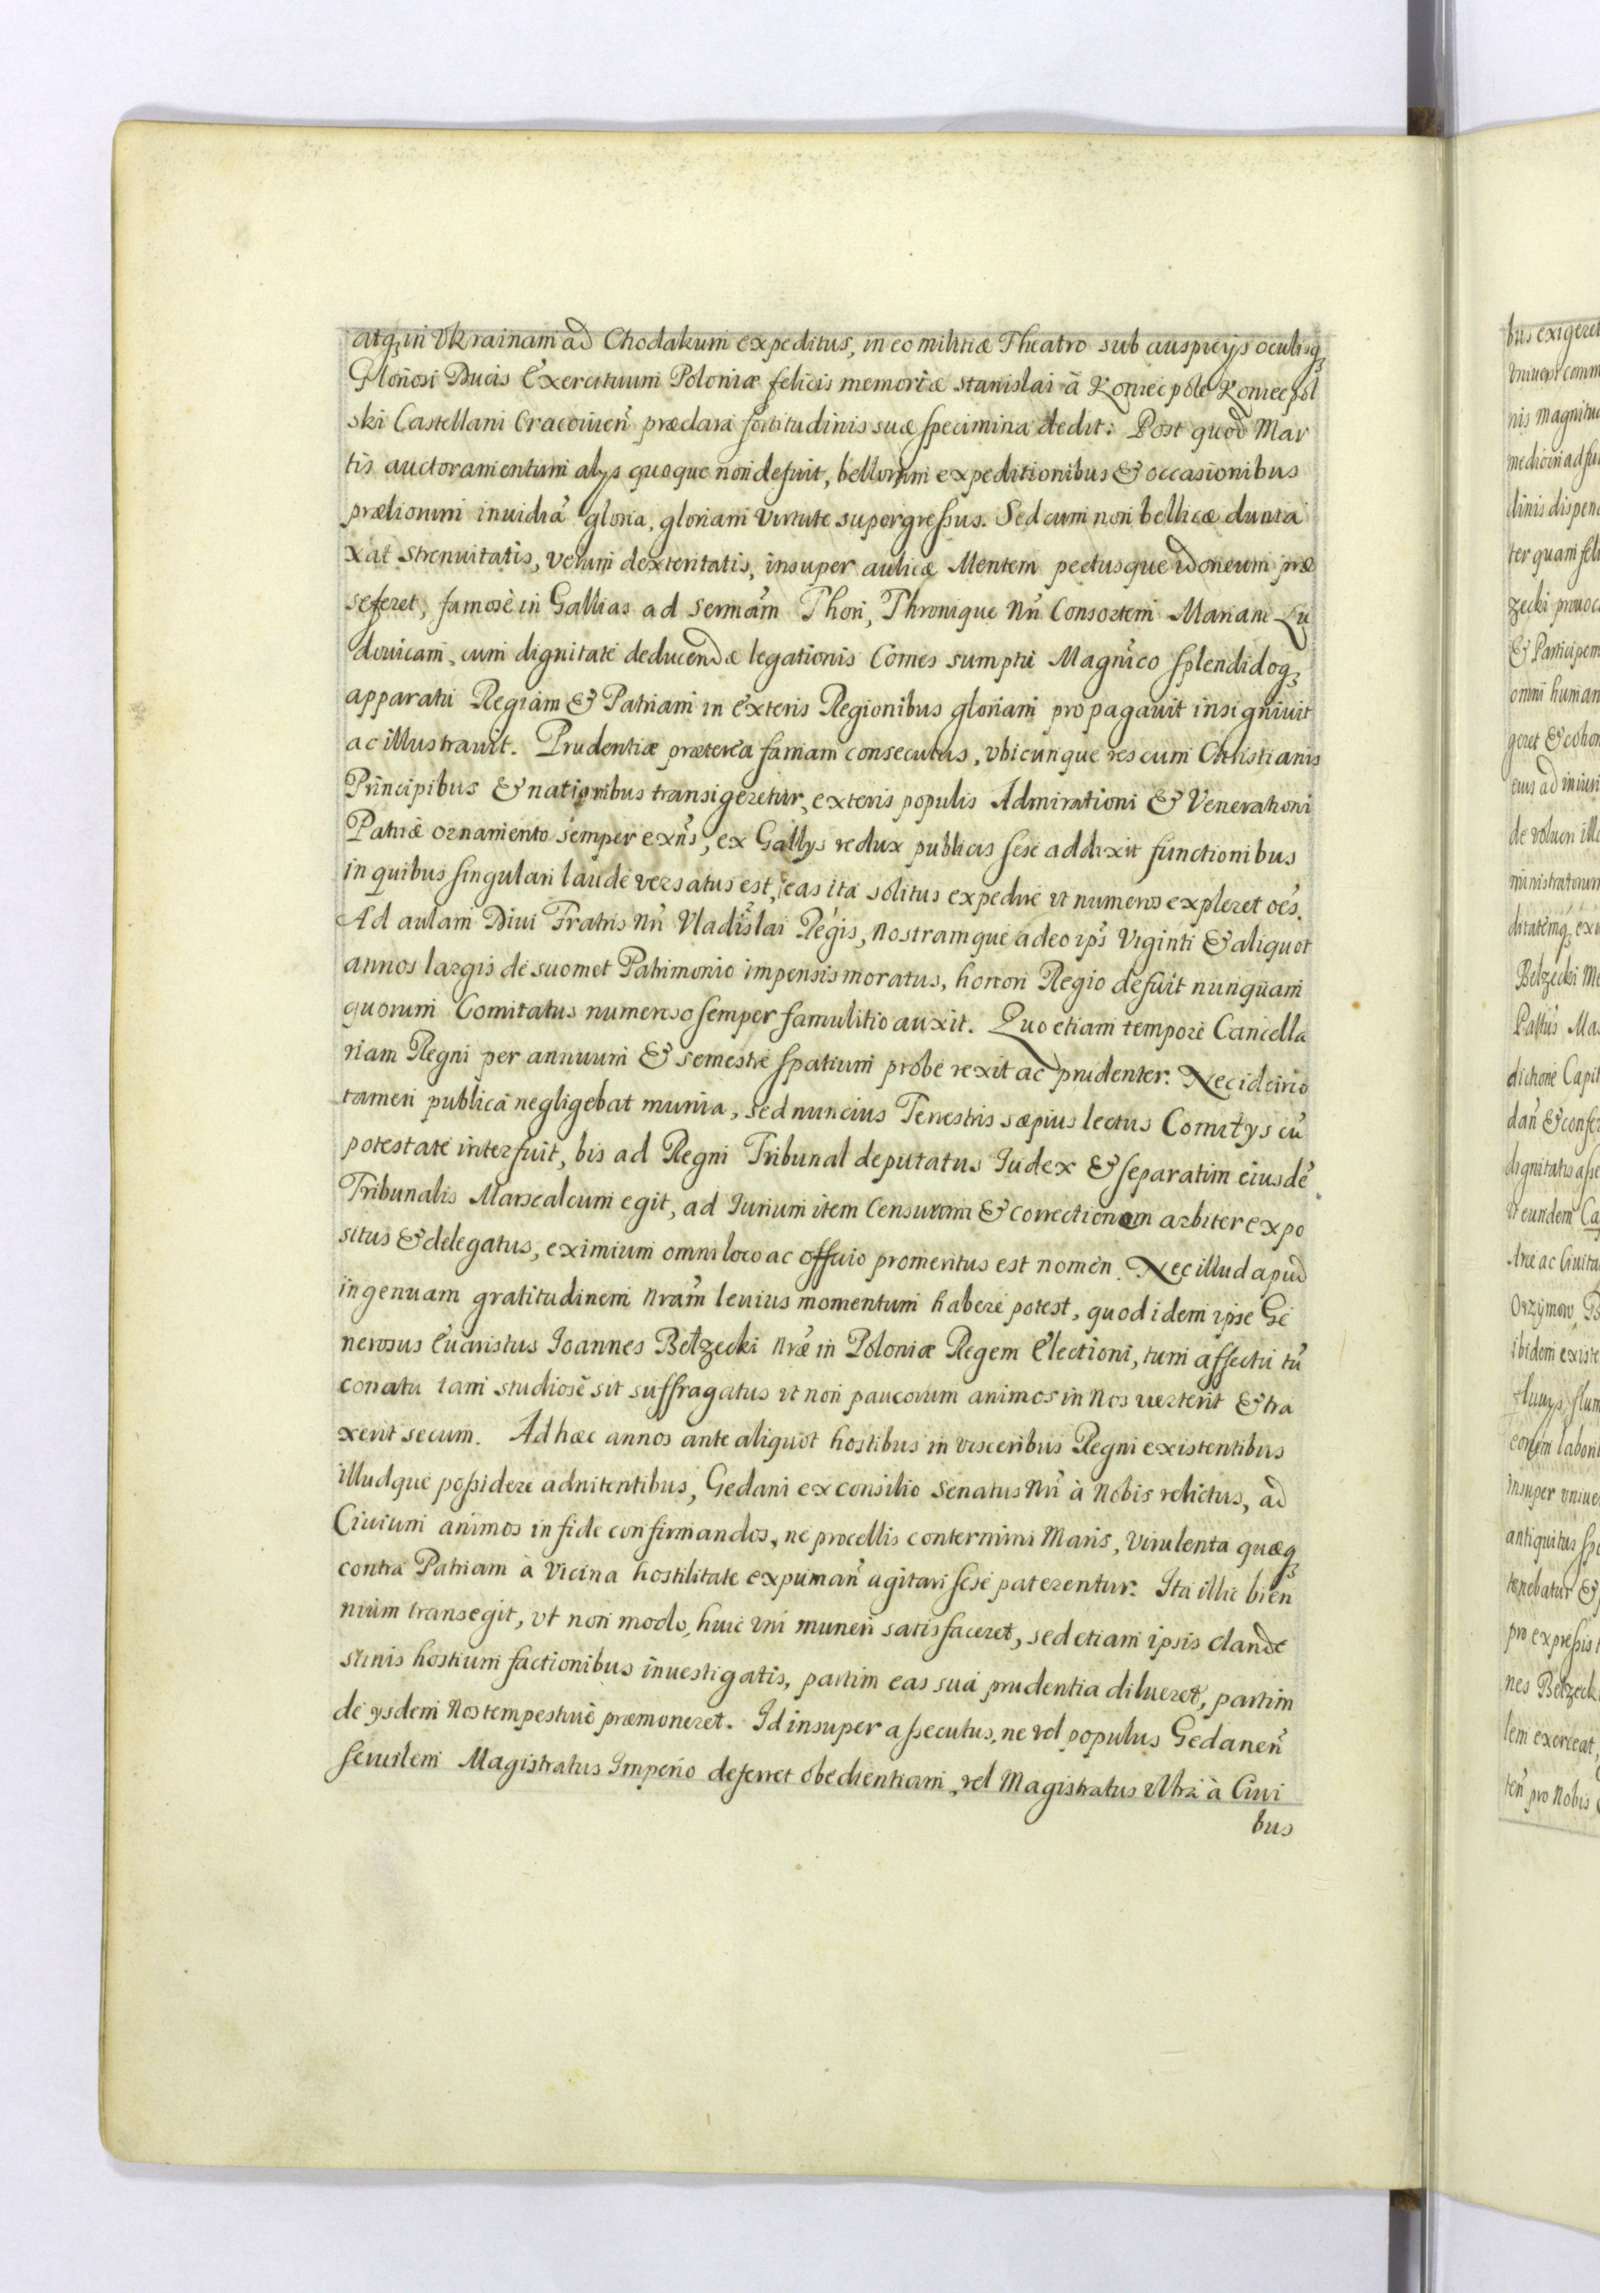 atq₃ in Vkrainam ad Chodakum expeditus, in eo militiæ Theatro sub auspicijs oculisq₃
Gloriosi Ducis Exercituum Poloniæ felicis memoriæ Stanislai à Koniecpole Koniecpol
ski Castellani Cracouien̄ præclara fortitudinis suæ specimina dedit: Post quod Mar
tis auctoramentum alys quoque non defuit, bellorum expeditionibus & occasionibus
præliorum inuidiã gloria, gloriam virtute supergressus. Sed cum non bellicæ dunta
xat strenuitatis, verum dexteritatis, insuper aulicæ Mentem pectusque idoneum præ
seferet, famosè in Gallias ad Sermãm Thori, Thronique Nr̃i Consortem Mariam Lu
douicam, cum dignitate deducendæ legationis Comes sumptu Magnĩco splendidoq₃
apparatu Regiam & Patriam in exteris Regionibus gloriam propagauit insigniuit
ac illustrauit. Prudentiæ præterea famam consecutus, vbicunque res cum Christianis
Principibus & nationibus transigeretur, exteris populis Admirationi & Venerationi
Patriæ ornamento semper exñs, ex Gallys redux publicis sese addixit functionibus
in quibus singulari laude versatus est, eas ita solitus expedire vt numeros expleret oẽs.
Ad aulam Diui Fratris Nr̃i Vladislai Regis, nostramque adeo ip̃s Viginti & aliquot
annos largis de suomet Patrimonio impensis moratus, honori Regio defuit nunquam
quorum Comitatus numeroso semper famulitio auxit. Quo etiam tempore Cancella
riam Regni per annuum & semestre spatium probe rexit ac prudenter. Nec idcirio
tamen publica negligebat munia, sed nuncius Terrestris sæpius lectus Comitys cũ
potestate interfuit, bis ad Regni Tribunal deputatus Iudex & separatim eiusdẽ
Tribunalis Marscalcum egit, ad Iurium item Censuram & correctionem arbiter expo
situs & delegatus, eximium omni loco ac officio promeritus est nomen. Nec illud apud
ingenuam gratitudinem nrãm leuius momentum habere potest, quod idem ipse Ge
nerosus Euaristus Ioannes Bełzecki nræ̃ in Poloniæ Regem Electioni, tum affectu tũ
conatu tam studiosè sit suffragatus vt non paucorum animos in Nos uerterit & tra
xerit secum. Ad hæc annos ante aliquot hostibus in visceribus Regni existentibus
illudque possidere adnitentibus, Gedani ex consilio Senatus Nr̃i à Nobis relictus, ad
Ciuium animos in fide confirmandos, ne procellis contermini Maris, virulenta quæq₃
contra Patriam à Vicina hostilitate expuman̄ agitari sese paterentur. Ita illic bien
nium transegit, vt non modo, huic vni muneri satisfaceret, sed etiam ipsis clande
stinis hostium factionibus inuestigatis, partim eas sua prudentia dilueret, partim
de ysdem Nos tempestiuè præmoneret. Id insuper assecutus, ne vel populus Gedanen̄
seruilem Magistratus Imperio deferret obedientiam, vel Magistratus vltra à Ciui
bus